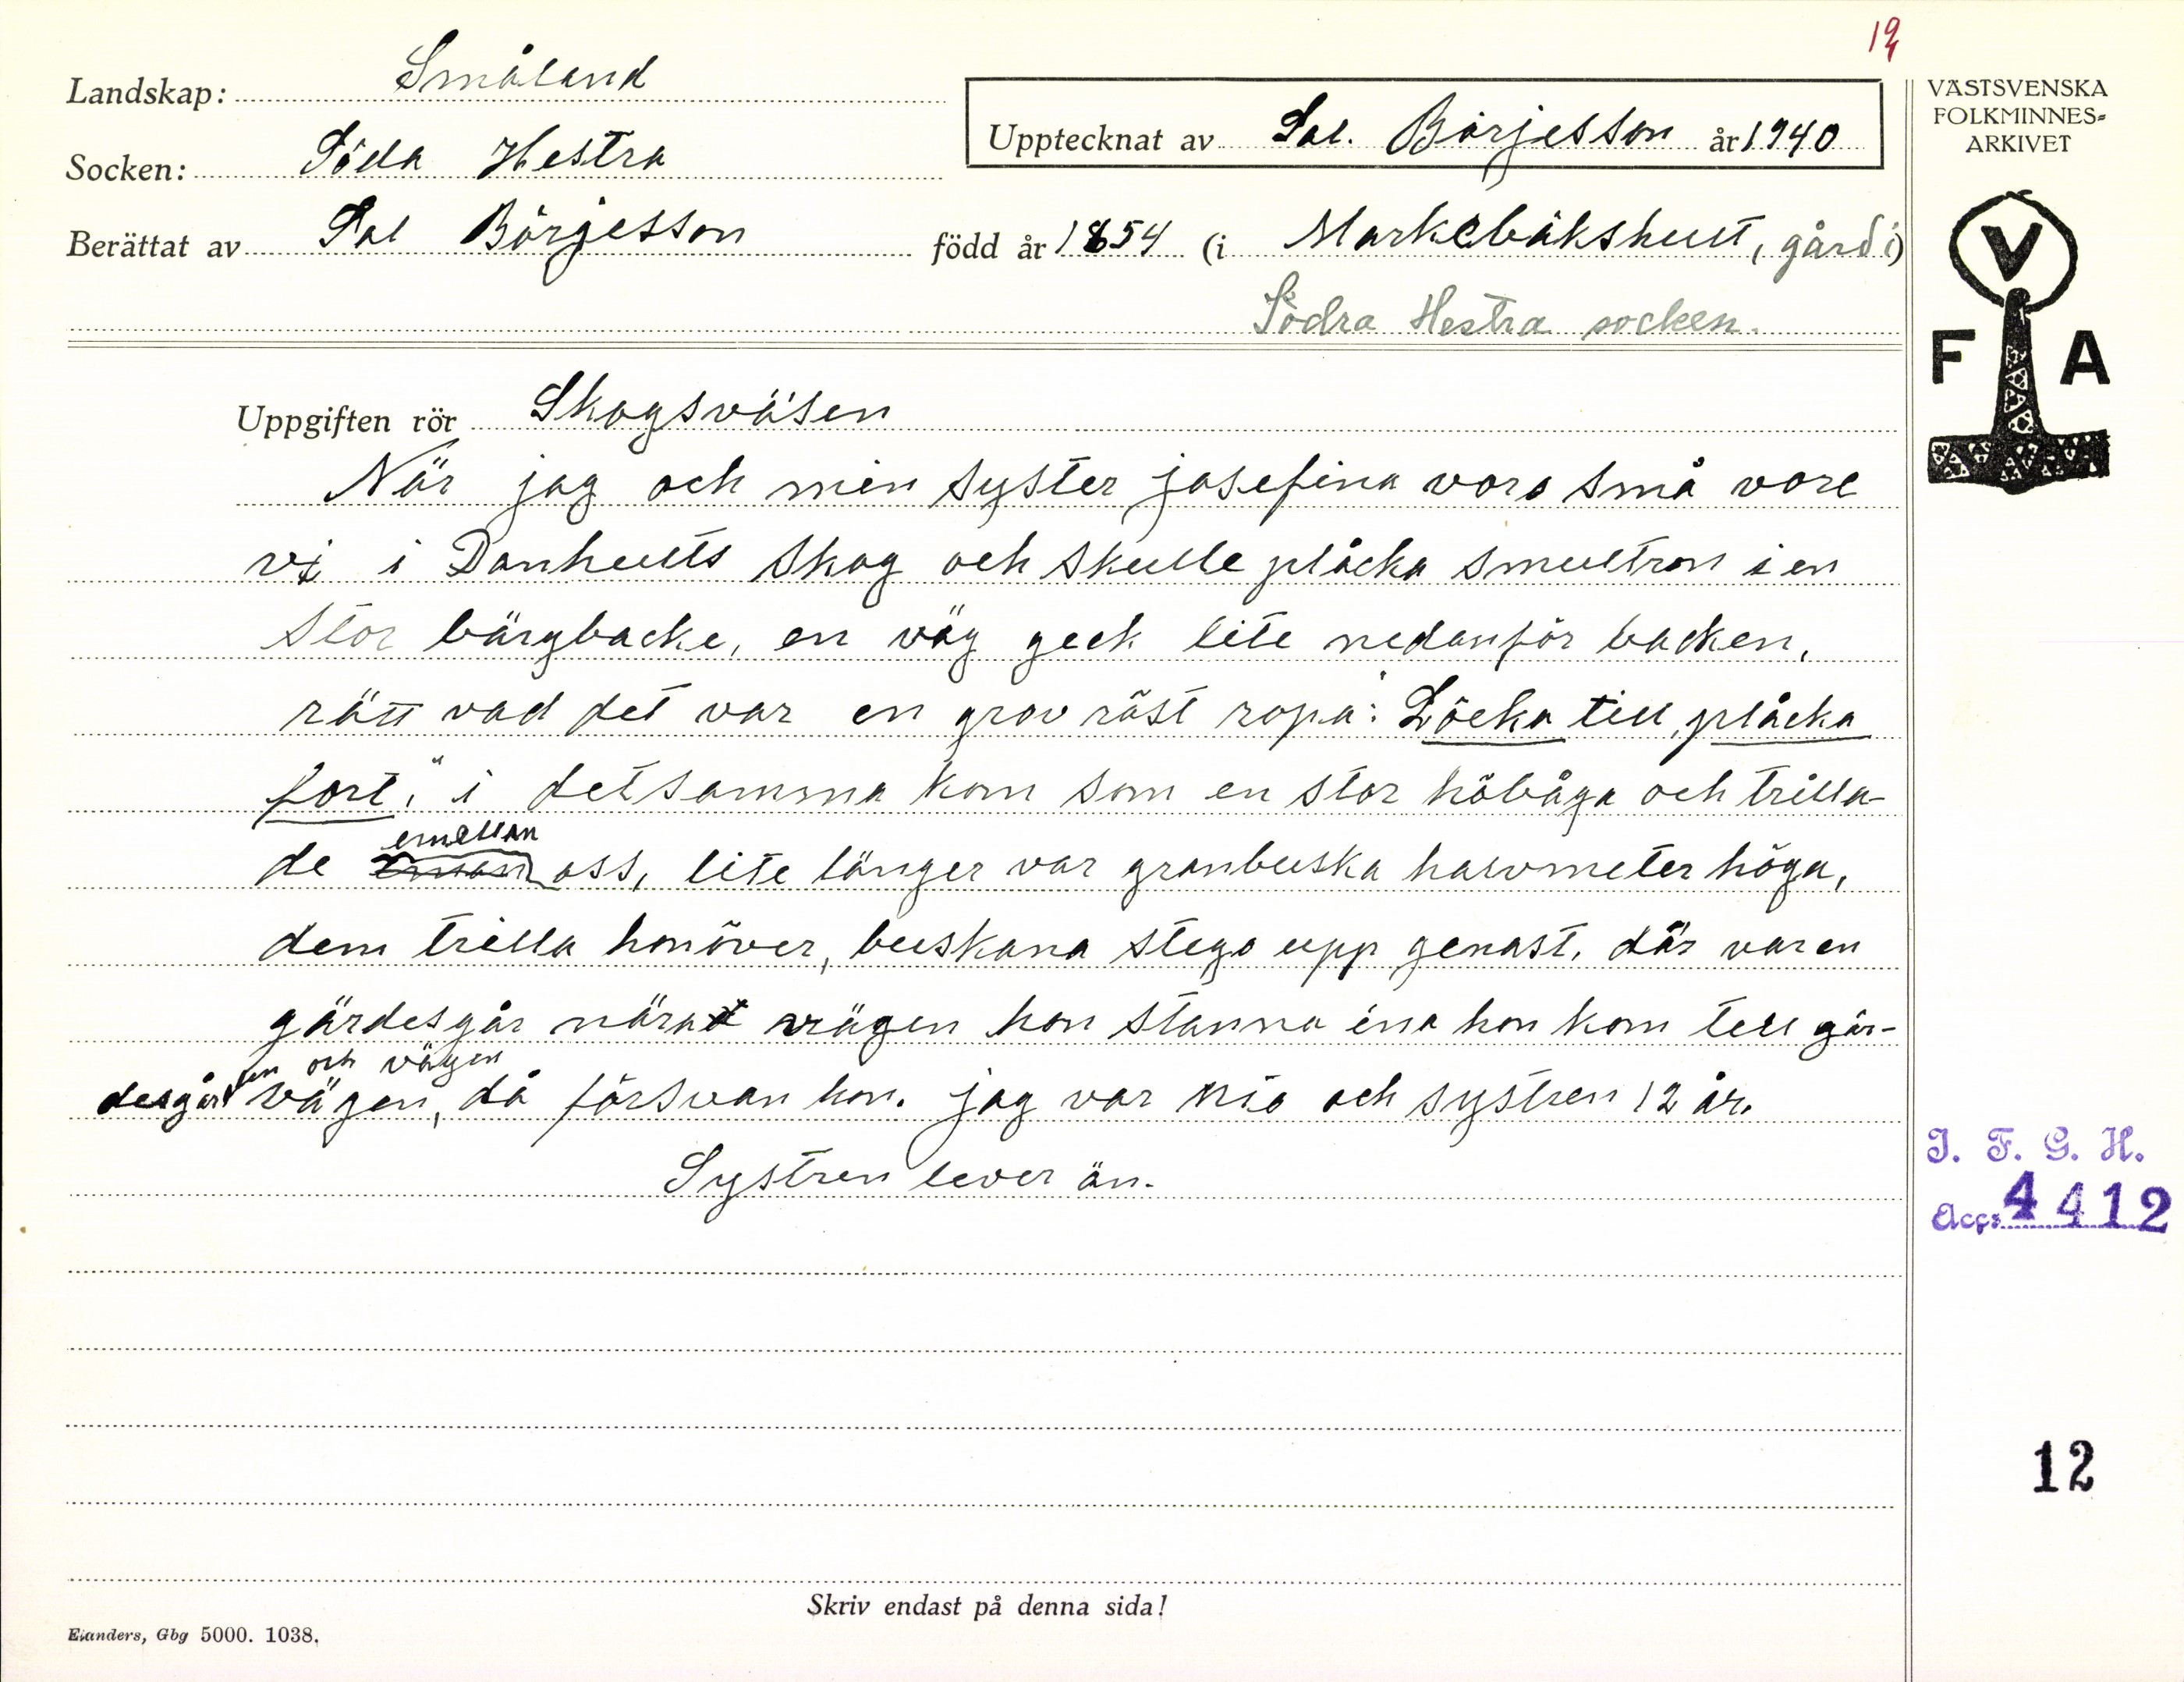 19
Landskap: Småland
Upptecknat av Sal. Börjesson år 1940
VÄSTSVENSKA
FOLKMINNES=
ARKIVET
Socken: Söda Hestra
Berättat av Sal Börjesson född år 1854 (i Markebäkshult, gård i)
Södra Hestra socken.
V
F A
Uppgiften rör Skogsväsen
När jag och min syster josefina voro små vore
vi i Danhults skog och skulle plåcka smultron i en
stor bärgbacke, en väg geck lite nedanför backen,
rätt vad det var en grov röst ropa: "Löcka till, plåcka
fort," i detsamma kom som en stor höbåga och trilla-
de emellan oss, lite länger var granbuska halvmeter höga,
dem trilla hon över, buskana stego upp genast. där var en
gärdesgår nära vägen hon stanna ina hon kom till gär-
desgården och vägen
vägen, då försvan hon. jag var nio och systren 12 år.
Systren lever än.
I. F. G. H.
Acc: 4412
12
Skriv endast på denna sida!
Elanders, Gbg 5000. 1038.